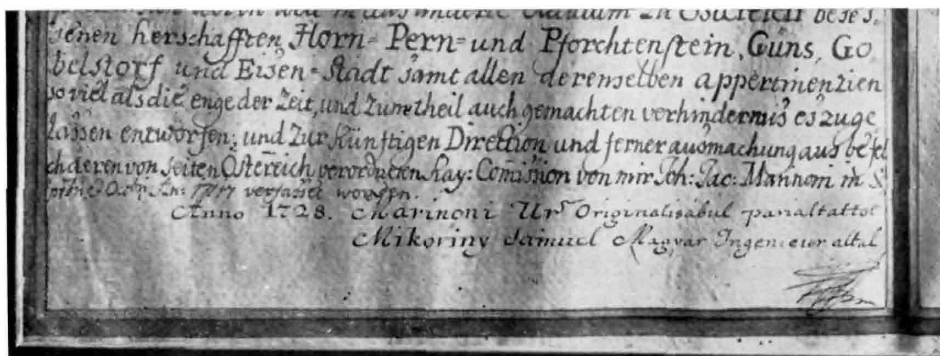 und in das andere Saeculum zu Osterreich beses,
senen herschafften, Horn= Pern= und Pforchtenstein, Güns, Go
belstorf und Eisen=Stadt samt allen derenselben appertinenzien
so viel als die enge der Zeit, und zum theil auch gemachten verhindernuis es zuge
lassen entworfen; und zur künftigen Direction und ferner ausmachung aus befel
ch deren von seiten Ostereich verordneten Kay: Comission von mir Joh: Jac: Marinoni in
An: 1717 verfasset worden.
Anno 1728. Marinoni Ur Originalisabul pariáltattot
Mikoviny Samuel Magyar Ingenieur által